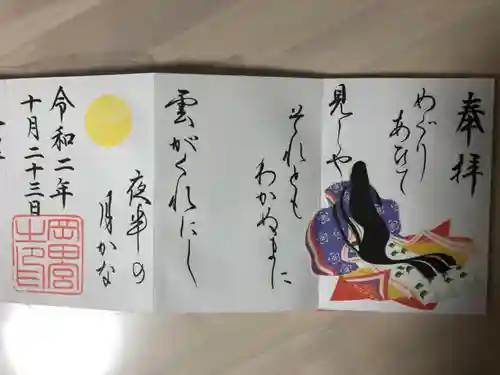 奉拝
めぐり
あひて
見しや
それとも
わかぬまに
雲がくれにし
夜半の
月かな
令和二年
十月二十三日